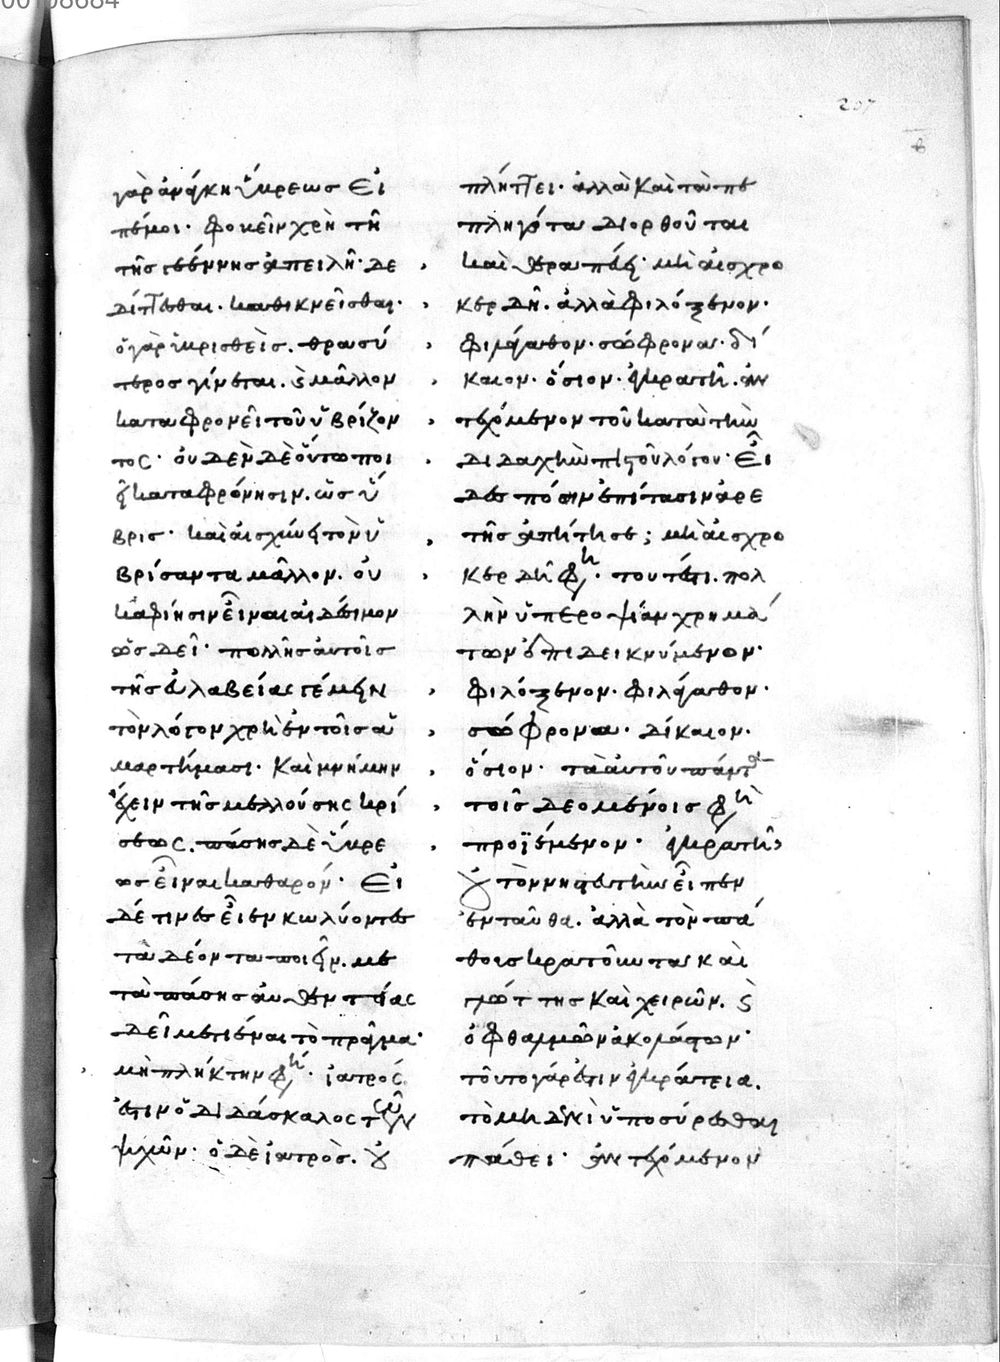 00108684
207
γὰρ ἀνάγκη ὕβρεως. Εἰ
πέ μοι. φοβεῖν χρὴ τῇ
τῆς γεέννης ἀπειλῇ. δε
δίττεσθαι. καθικνεῖσθαι.
ὁ γὰρ ὑβρισθεὶς. θρασύ
τερος γίνεται. καὶ μᾶλλον
καταφρονεῖ τοῦ ὑβρίζον
τος. οὐδὲν δὲ οὕτω ποι
εῖ καταφρόνησιν. ὡς ὕ
βρις. καὶ αἰσχύνει τὸν ὑ
βρίσαντα μᾶλλον. οὐ
κ ἀφίησιν εἶναι αἰδέσιμον
ὡς δεῖ. πολλῆς αὐτοῖς
τῆς εὐλαβείας γέμειν
τὸν λόγον χρὴ ἐν τοῖς ἁ
μαρτήμασι. Καὶ μνήμην
ἔχειν τῆς μελλούσης κρί
σεως. πάσης δὲ ὕβρε
ως εἶναι καθαρόν. Εἰ
δέ τινες εἶεν κωλύοντες
τὰ δέοντα ποιεῖν. με
τὰ πάσης αὐθεντίας
δεῖ μετιέναι τὸ πρᾶγμα.
μὴ πλήκτην φη. ἰατρός
ἐστιν ὁ διδάσκαλος τῶν
ψυχῶν. ὁ δὲ ἰατρὸς. οὐ
πλήττει. ἀλλὰ καὶ τὰ πε
πληγότα διορθοῦται
καὶ θεραπεύει. μὴ αἰσχρο
κερδῆ. ἀλλὰ φιλόξενον.
φιλάγαθον. σώφρονα. δί
καιον. ὅσιον. ἐγκρατῆ. ἀν
τεχόμενον τοῦ κατὰ τὴν
διδαχὴν πιστοῦ λόγου. Εἶ
δες πόσην ἐπίτασιν ἀρε
τῆς ἀπῄτησε; μὴ αἰσχρο
κερδῆ φη. τουτέστι. πολ
λὴν ὑπεροψίαν χρημά
των ἐπιδεικνύμενον.
φιλόξενον. φιλάγαθον.
σώφρονα. δίκαιον.
ὅσιον. τὰ αὐτοῦ πάντα
τοῖς δεομένοις φη
προϊέμενον. ἐγκρατῆ
οὐ τὸν νηστευτὴν εἶπεν
ἐνταῦθα. ἀλλὰ τὸν πά
θους κρατοῦντα καὶ
γλώττης καὶ χειρῶν. καὶ
ὀφθαλμῶν ἀκολάστων.
τοῦτο γάρ ἐστιν ἐγκράτεια.
τὸ μηδενὶ ὑποσύρεσθαι
πάθει. ἀντεχόμενον